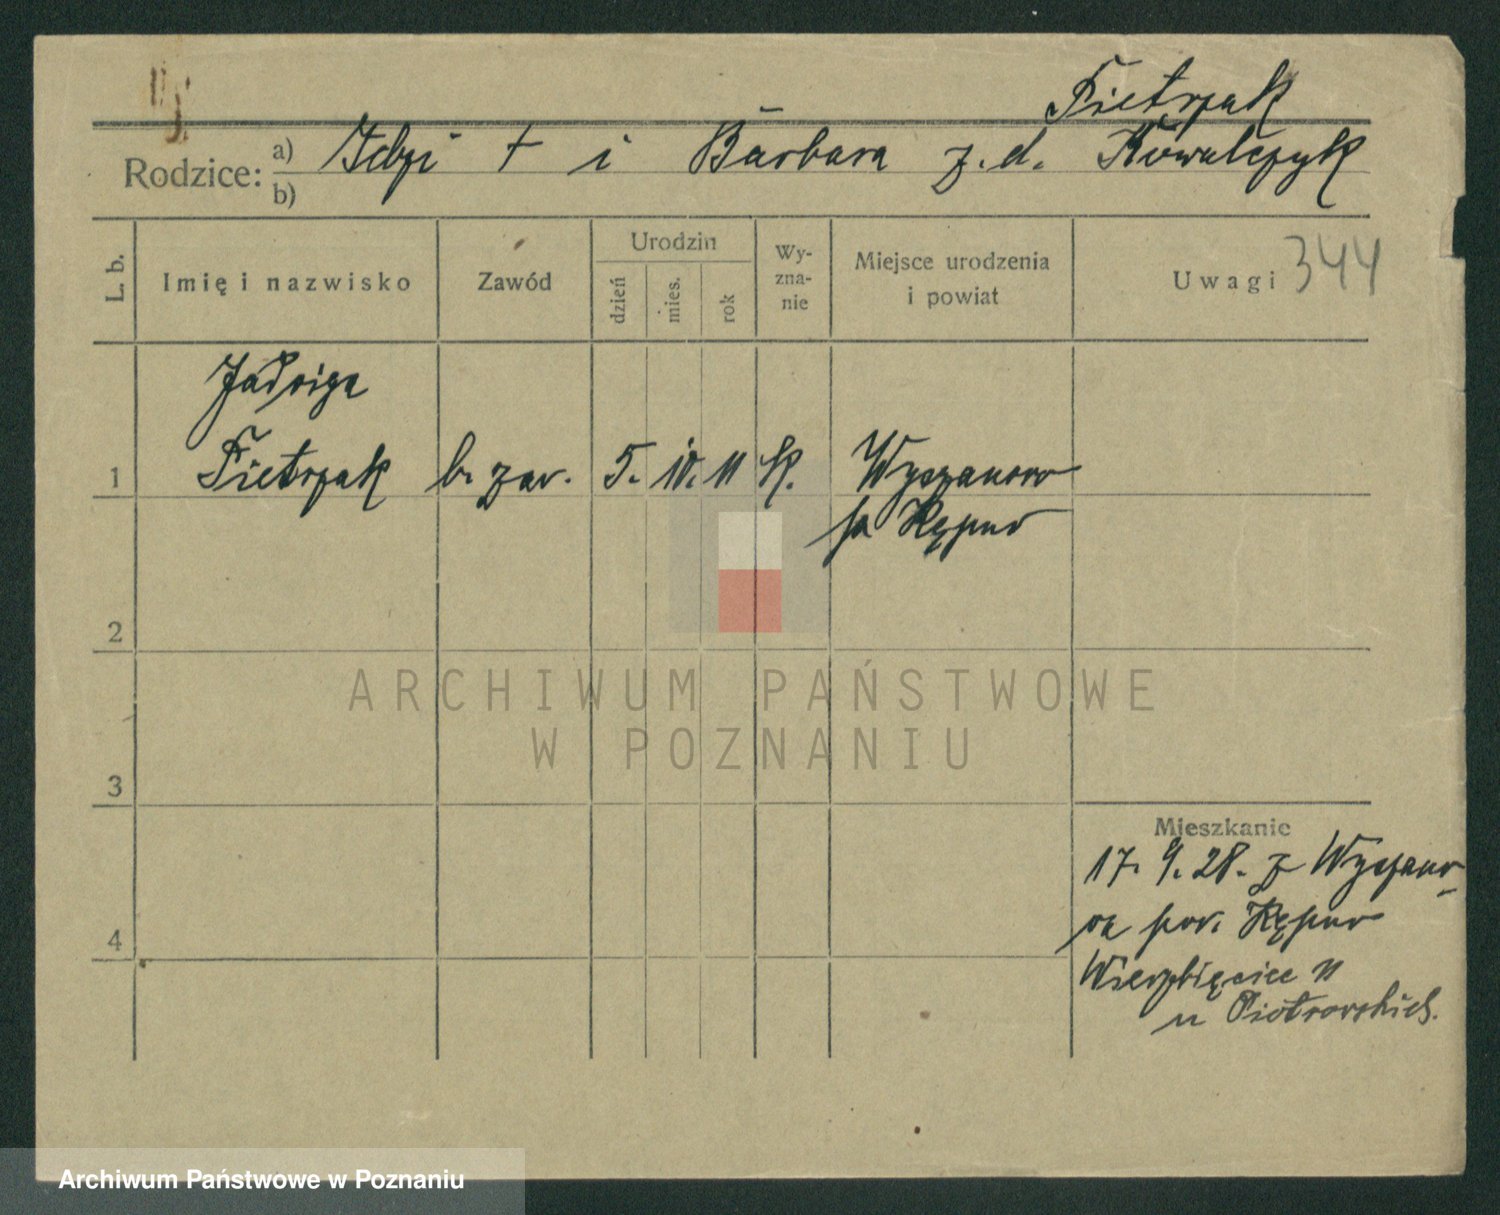 Pietrzak
Rodzice: a) † i Barbara z. d. Kowalczyk
b)
L. b.
Imię i nazwisko
Zawód
Urodzin
dzień
mies.
rok
Wy-
zna-
nie
Miejsce urodzenia
i powiat
Uwagi 344
Jadwiga
1 Pietrzak b. zaw. 5. 10. 11 K. Wyszanowo
pa Kępno
2
ARCHIWUM PAŃSTWOWE
W POZNANIU
3
Mieszkanie
17. 9. 28. z Wyszano-
wa pow. Kępno
4
Wierzbięcice 11
u Piotrowskich.
Archiwum Państwowe w Poznaniu